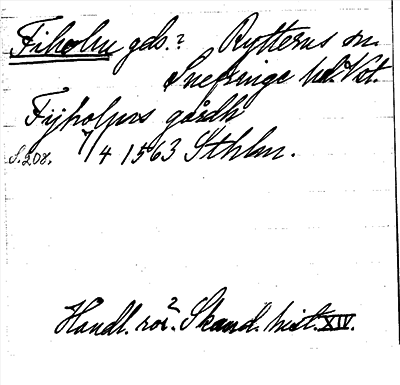 Fiholm gds.? Rytterns sn.
Snefringe hd. Vstm.
Fijholms gårdh
s. 208. 7/4 1563 Sthlm.
Handl. rör? Skand. hist. XIV.